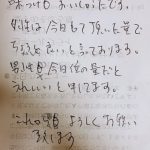 味つけも おいしかったです。
女性は 今日もて頂いた量で
ちょうど良いと言っております。
男性は 今日位の量だと
うれしいと 申してます。
これからも よろしくお願い
致します